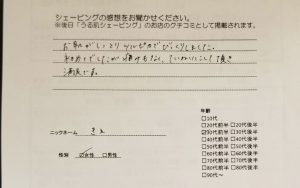 シェービングの感想をお聞かせください。
※後日「うる肌シェービング」のお店のクチコミとして掲載されます。
お肌がしっとりツルピカでびっくりしました。
初めてでしたが痛みもなく、ていねいにして頂き
満足です。
ニックネーム
性別 ☑女性 □男性
年齢
□10代
□20代前半 □20代後半
□30代前半 □30代後半
□40代前半 □40代後半
□50代前半 □50代後半
□60代前半 □60代後半
□70代前半 □70代後半
□80代前半 □80代後半
□90代～